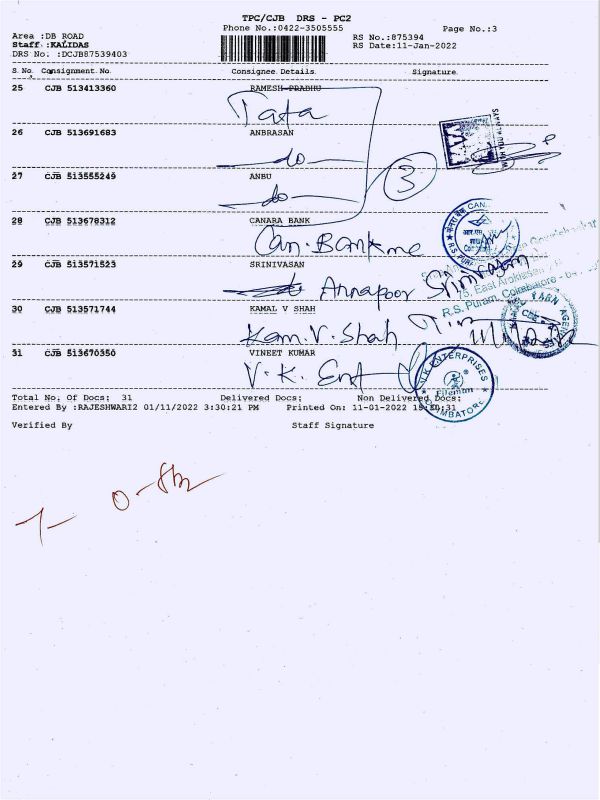 TPC/CJB DRS - PC2
Phone No.:0422-3505555
Page No.:3
Area :DB ROAD
RS No.:875394
Staff :KALIDAS
RS Date:11-Jan-2022
DRS No. :DCJB87539403
S.No. Consignment.No. Consignee.Details. Signature.
25 CJB 513413360 RAMESH PRABHU
Tata
26 CJB 513691683 ANBRASAN
do
27 CJB 513555249 ANBU
do
3
28 CJB 513678312 CANARA BANK
Can. Bank
29 CJB 513571523 SRINIVASAN
Annapoor Srinivasan
R.S. Puram, Coimbatore
30 CJB 513571744 KAMAL V SHAH
Kam. V. Shah
31 CJB 513670350 VINEET KUMAR
V. K. Ent
V.K. ENTERPRISES
COIMBATORE
Total No. Of Docs: 31 Delivered Docs: Non Delivered Docs:
Entered By :RAJESHWARI2 01/11/2022 3:30:21 PM Printed On: 11-01-2022
Verified By Staff Signature